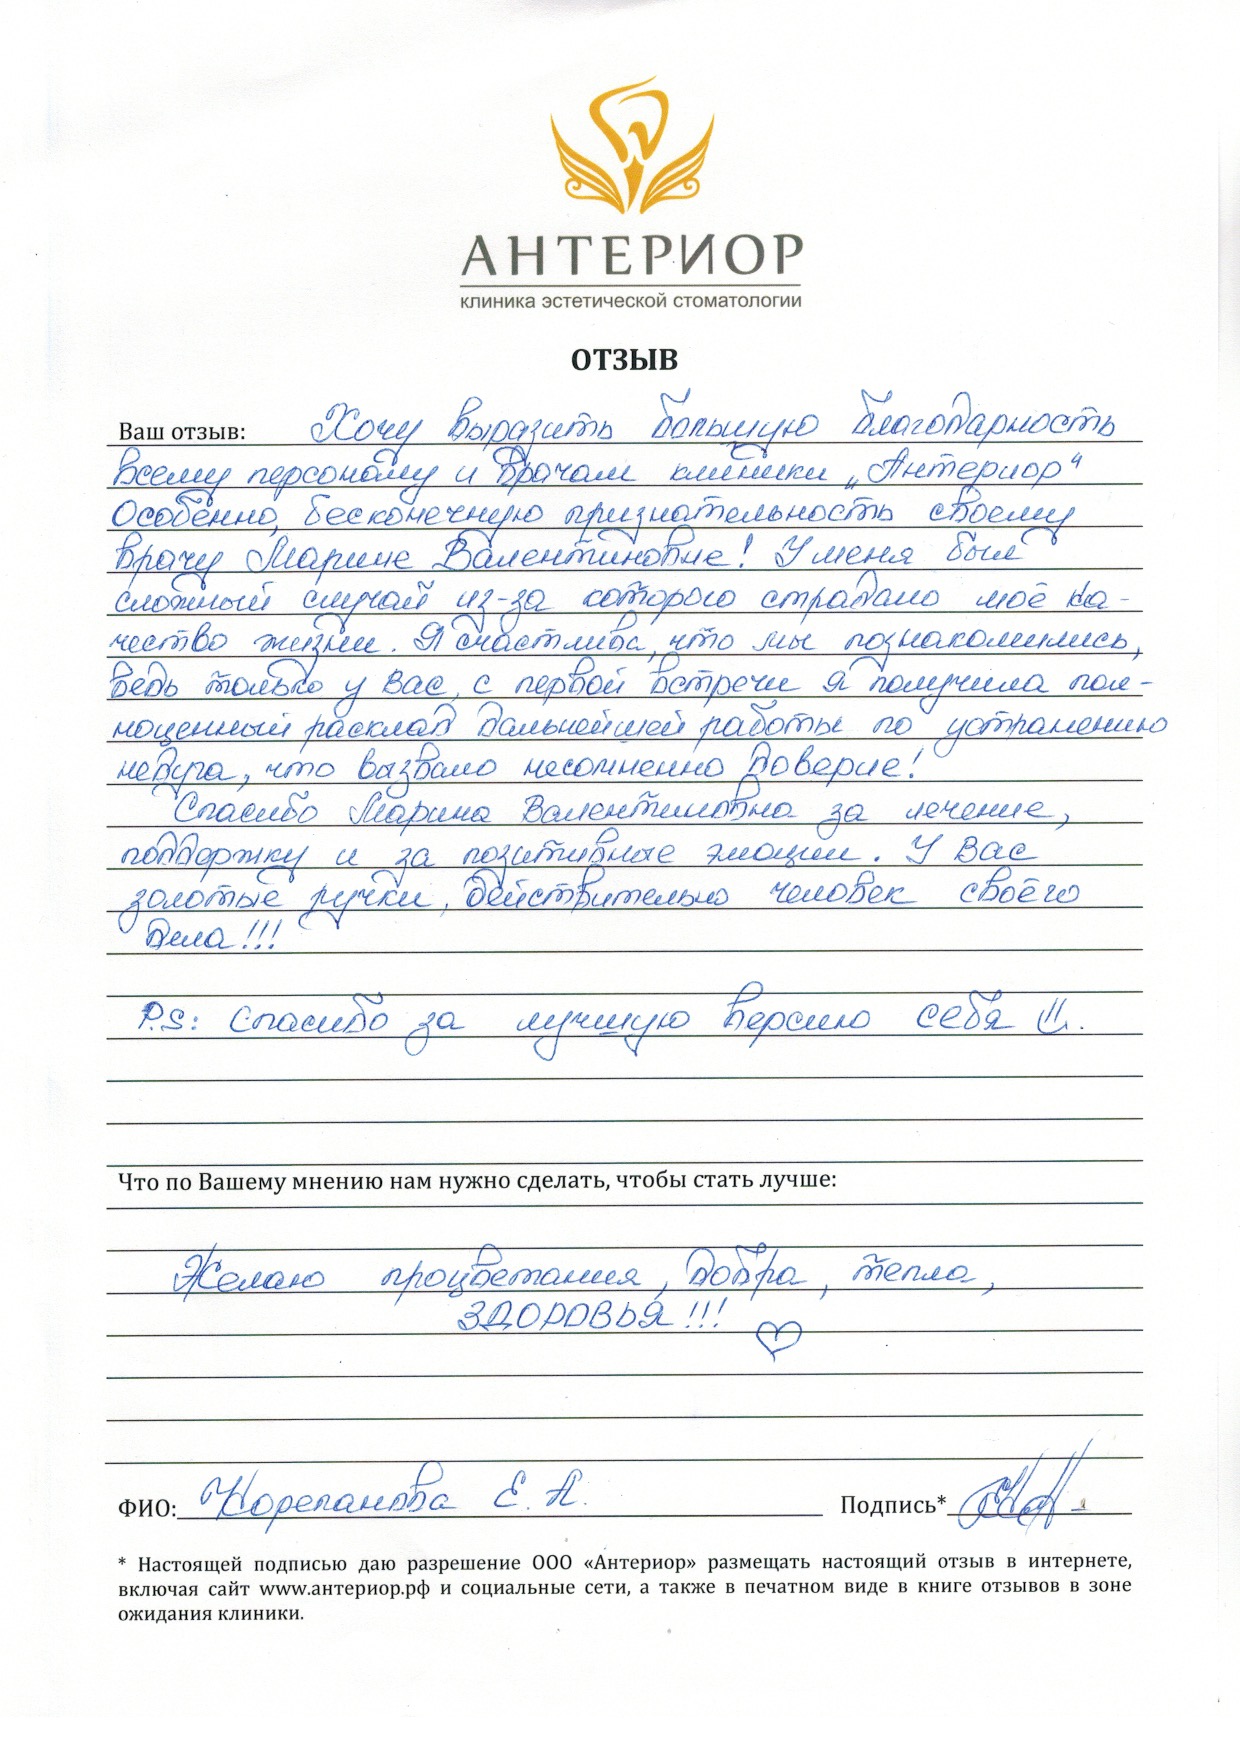 АНТЕРИОР
клиника эстетической стоматологии
ОТЗЫВ
Ваш отзыв: Хочу выразить большую благодарность
всему персоналу и врачам клиники „Антериор“
Особенно, бесконечную признательность своему
врачу Марине Валентиновне! У меня был
сложный случай из-за которого страдало моё ка-
чество жизни. Я счастлива, что мы познакомились,
ведь только у Вас, с первой встречи я получила пол-
ноценный расклад дальнейшей работы по устранению
недуга, что вызвало несомненно доверие!
Спасибо Марина Валентиновна за лечение,
поддержку и за позитивные эмоции. У Вас
золотые ручки, действительно человек своего
дела!!!
P.S: Спасибо за лучшую версию себя
Что по Вашему мнению нам нужно сделать, чтобы стать лучше:
Желаю процветания, добра, тепла,
ЗДОРОВЬЯ!!!
ФИО: Корепанова Е. А. Подпись*
* Настоящей подписью даю разрешение ООО «Антериор» размещать настоящий отзыв в интернете,
включая сайт www.антериор.рф и социальные сети, а также в печатном виде в книге отзывов в зоне
ожидания клиники.